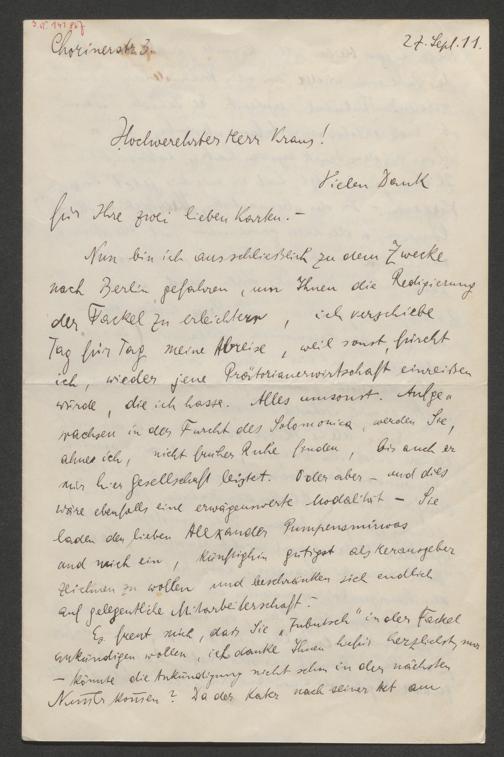 Chorinerstr. 3.
27. Sept. 11.
Hochverehrter Herr Kraus!
Vielen Dank
für Ihre zwei lieben Karten. –
Nun bin ich ausschließlich zu dem Zwecke
nach Berlin gefahren, um Ihnen die Redigierung
der Fackel zu erleichtern, ich verschiebe
Tag für Tag meine Abreise, weil sonst, fürcht
ich, wieder jene Prätorianerwirtschaft einreißen
würde, die ich hasse. Alles umsonst. Aufge-
wachsen in der Furcht des Solomonica, werden Sie,
ahne ich, nicht früher Ruhe finden, bis auch er
mir hier Gesellschaft leistet. Oder aber – und dies
wäre ebenfalls eine erwägenswerte Modalität – Sie
laden den lieben Alexander Pumpenamirwas
und mich ein, künftighin gütigst als Herausgeber
zeichnen zu wollen und beschränken sich endlich
auf gelegentliche Mitarbeiterschaft. –
Es freut mich, dass Sie „Tubutsch" in der Fackel
ankündigen wollen, ich danke Ihnen hiefür herzlichst, nur
– könnte die Ankündigung nicht schon in der nächsten
Nummer kommen? Da der Kater nach seiner Art am